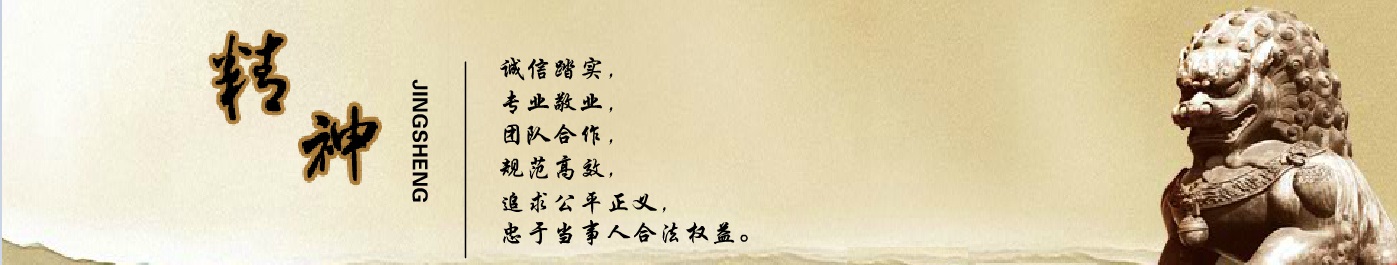 精神
JINGSHENG
诚信踏实，
专业敬业，
团队合作，
规范高效，
追求公平正义，
忠于当事人合法权益。